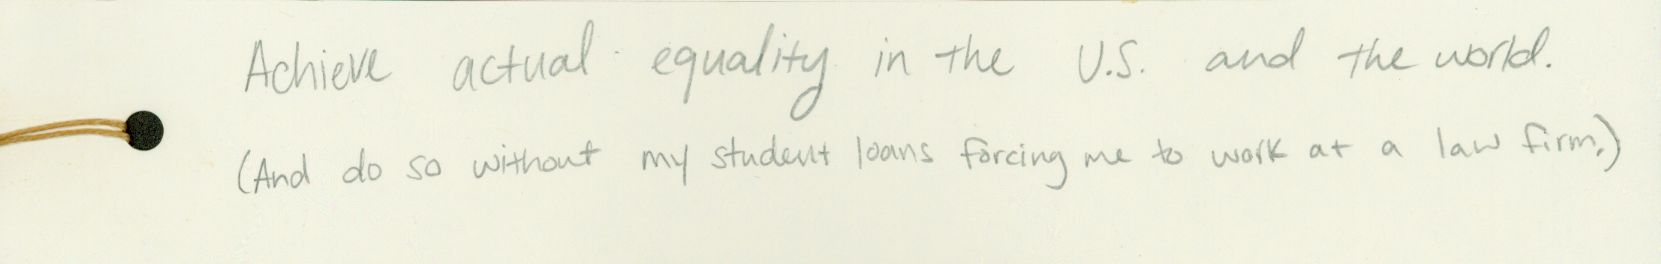 Achieve actual equality in the U.S. and the world.
(And do so without my student loans forcing me to work at a law firm.)